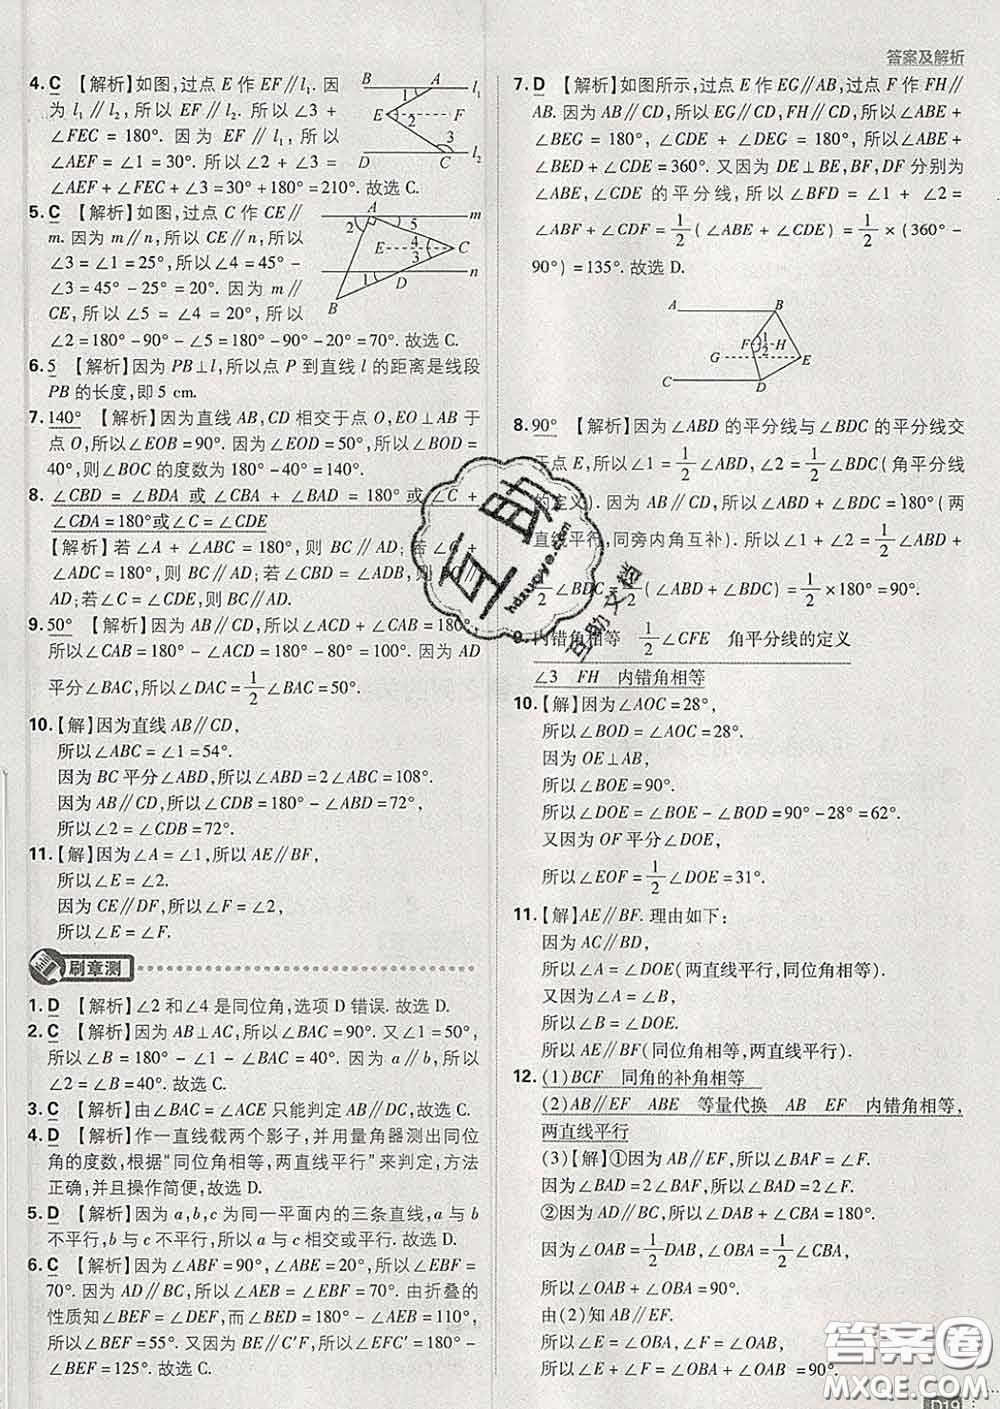 答案及解析
4. C 【解析】如图,过点 E 作 EF∥l₁. 因
为 l₁∥l₂,所以 EF∥l₂. 所以∠3 +
∠FEC = 180°. 因为 EF∥l₁,所以
∠AEF = ∠1 = 30°. 所以∠2 + ∠3 =
∠AEF + ∠FEC + ∠3 = 30° + 180° = 210°. 故选 C.
B A l₁
1
E 2 F
3
D C l₂
5. C 【解析】如图,过点 C 作 CE∥
m. 因为 m∥n,所以 CE∥n,所以
∠3 = ∠1 = 25°,所以∠4 = 45° -
∠3 = 45° - 25° = 20°. 因为 m∥
CE,所以∠5 = ∠4 = 20°,所以
∠2 = 180° - 90° - ∠5 = 180° - 90° - 20° = 70°. 故选 C.
A m
2 5
E 4 C
1 3
D n
B
6. 5 【解析】因为 PB⊥l,所以点 P 到直线 l 的距离是线段
PB 的长度,即 5 cm.
7. 140° 【解析】因为直线 AB,CD 相交于点 O,EO⊥AB 于
点 O,所以∠EOB = 90°. 因为∠EOD = 50°,所以∠BOD =
40°,则∠BOC 的度数为 180° - 40° = 140°.
8. ∠CBD = ∠BDA 或∠CBA + ∠BAD = 180°或∠C +
∠CDA = 180°或∠C = ∠CDE
【解析】若∠A + ∠ABC = 180°,则 BC∥AD;若∠C +
∠ADC = 180°,则 BC∥AD;若∠CBD = ∠ADB,则 BC∥
AD;若∠C = ∠CDE,则 BC∥AD.
9. 50° 【解析】因为 AB∥CD,所以∠ACD + ∠CAB = 180°,
所以∠CAB = 180° - ∠ACD = 180° - 80° = 100°. 因为 AD
平分∠BAC,所以∠DAC = 1/2∠BAC = 50°.
10. 【解】因为直线 AB∥CD,
所以∠ABC = ∠1 = 54°.
因为 BC 平分∠ABD,所以∠ABD = 2∠ABC = 108°.
因为 AB∥CD,所以∠CDB = 180° - ∠ABD = 72°,
所以∠2 = ∠CDB = 72°.
11. 【解】因为∠A = ∠1,所以 AE∥BF,
所以∠E = ∠2.
因为 CE∥DF,所以∠F = ∠2,
所以∠E = ∠F.
刷章测
1. D 【解析】∠2 和∠4 是同位角,选项 D 错误. 故选 D.
2. C 【解析】因为 AB⊥AC,所以∠BAC = 90°. 又∠1 = 50°,
所以∠B = 180° - ∠1 - ∠BAC = 40°. 因为 a∥b,所以
∠2 = ∠B = 40°. 故选 C.
3. C 【解析】由∠BAC = ∠ACE 只能判定 AB∥DC,故选 C.
4. D 【解析】作一直线截两个影子,并用量角器测出同位
角的度数,根据“同位角相等,两直线平行”来判定,方法
正确,并且操作简便,故选 D.
5. D 【解析】因为 a,b,c 为同一平面内的三条直线,a 与 b
不平行,b 与 c 不平行,所以 a 与 c 相交或平行. 故选 D.
6. C 【解析】因为∠ABF = 90°,∠ABE = 20°,所以∠EBF =
70°. 因为 AD∥BC,所以∠AEB = ∠EBF = 70°. 由折叠的
性质知∠BEF = ∠DEF,而∠BED = 180° - ∠AEB = 110°,
所以∠BEF = 55°. 又因为 BE∥C′F,所以∠EFC′ = 180° -
∠BEF = 125°. 故选 C.
7. D 【解析】如图所示,过点 E 作 EG∥AB,过点 F 作 FH∥
AB. 因为 AB∥CD,所以 EG∥CD,FH∥CD,所以∠ABE +
∠BEG = 180°,∠CDE + ∠DEG = 180°,所以∠ABE +
∠BED + ∠CDE = 360°. 又因为 DE⊥BE,BF,DF 分别为
∠ABE,∠CDE 的平分线,所以∠BFD = ∠1 + ∠2 =
∠ABF + ∠CDF = 1/2(∠ABE + ∠CDE) = 1/2 × (360° -
90°) = 135°. 故选 D.
A B
F 1 H
2
G E
C D
8. 90° 【解析】因为∠ABD 的平分线与∠BDC 的平分线交
于点 E,所以∠1 = 1/2∠ABD,∠2 = 1/2∠BDC(角平分线
的定义). 因为 AB∥CD,所以∠ABD + ∠BDC = 180°(两
直线平行,同旁内角互补). 所以∠1 + ∠2 = 1/2∠ABD +
1/2∠BDC = 1/2(∠ABD + ∠BDC) = 1/2 × 180° = 90°.
9. 内错角相等 1/2∠CFE 角平分线的定义
∠3 FH 内错角相等
10. 【解】因为∠AOC = 28°,
所以∠BOD = ∠AOC = 28°.
因为 OE⊥AB,
所以∠BOE = 90°.
所以∠DOE = ∠BOE - ∠BOD = 90° - 28° = 62°.
又因为 OF 平分∠DOE,
所以∠EOF = 1/2∠DOE = 31°.
11. 【解】AE∥BF. 理由如下:
因为 AC∥BD,
所以∠A = ∠DOE(两直线平行,同位角相等).
又因为∠A = ∠B,
所以∠B = ∠DOE.
所以 AE∥BF(同位角相等,两直线平行).
12. (1)BCF 同角的补角相等
(2)AB∥EF ABE 等量代换 AB EF 内错角相等,
两直线平行
(3)【解】①因为 AB∥EF,所以∠BAF = ∠F.
因为∠BAD = 2∠BAF,所以∠BAD = 2∠F.
②因为 AD∥BC,所以∠DAB + ∠CBA = 180°.
因为∠OAB = 1/2DAB,∠OBA = 1/2∠CBA,
所以∠OAB + ∠OBA = 90°.
由(2)知 AB∥EF.
所以∠E = ∠OBA,∠F = ∠OAB,
所以∠E + ∠F = ∠OBA + ∠OAB = 90°.
互助
hdzuoye.com
互助文档
答案圈
MXQE.COM
D19